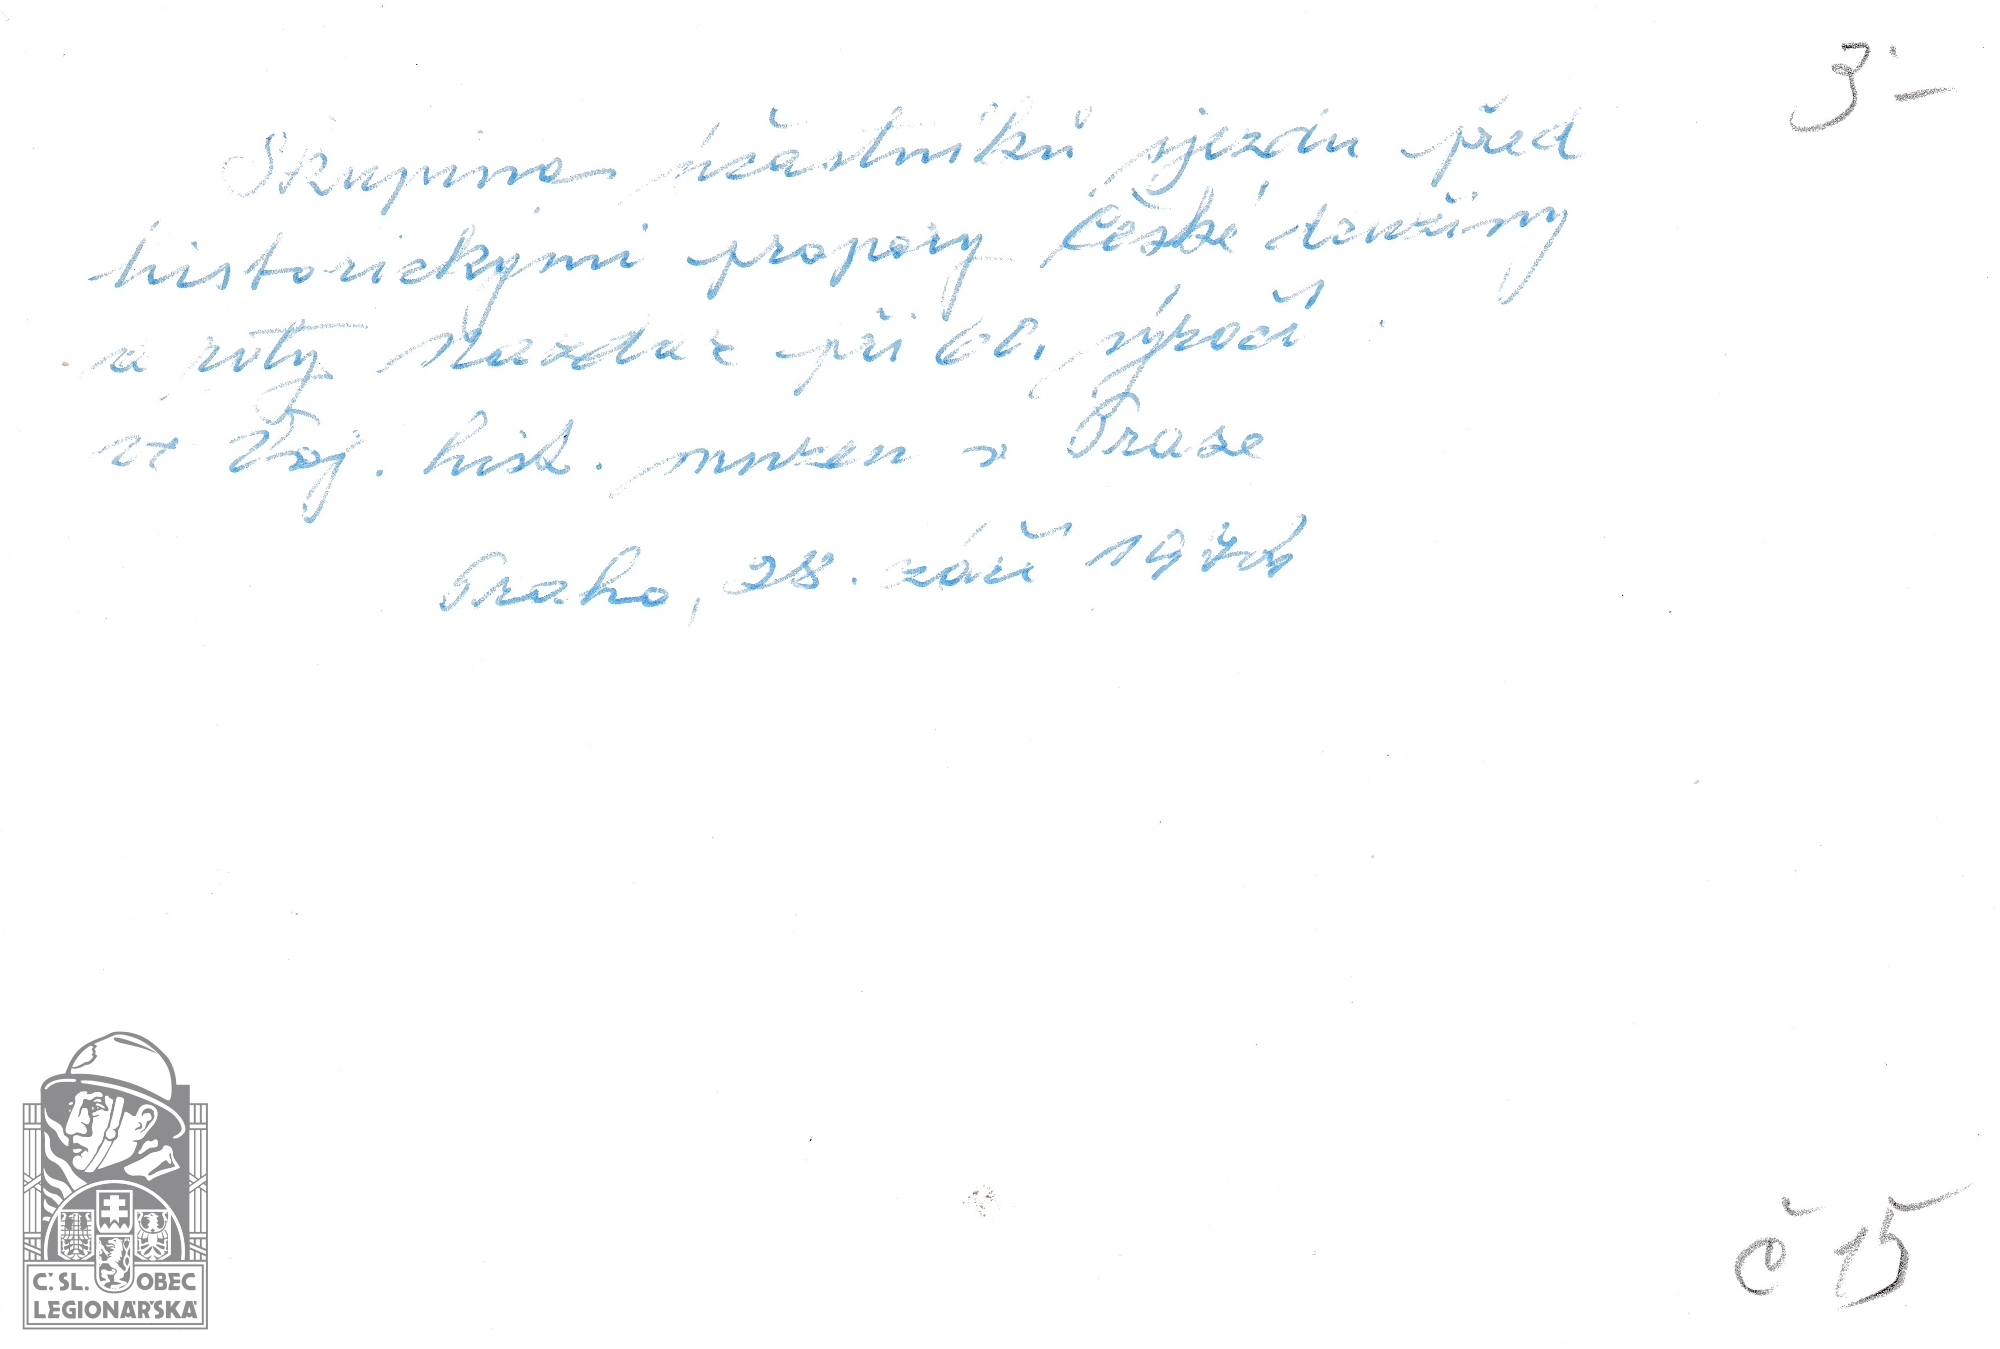 3·–
Skupina účastníků sjezdu před
historickými prapory České družiny
a roty Nazdar při 60. výročí
ve Voj. hist. muzeu v Praze
Praha, 28. září 1974
č 15
Č. SL. OBEC
LEGIONÁŘSKÁ